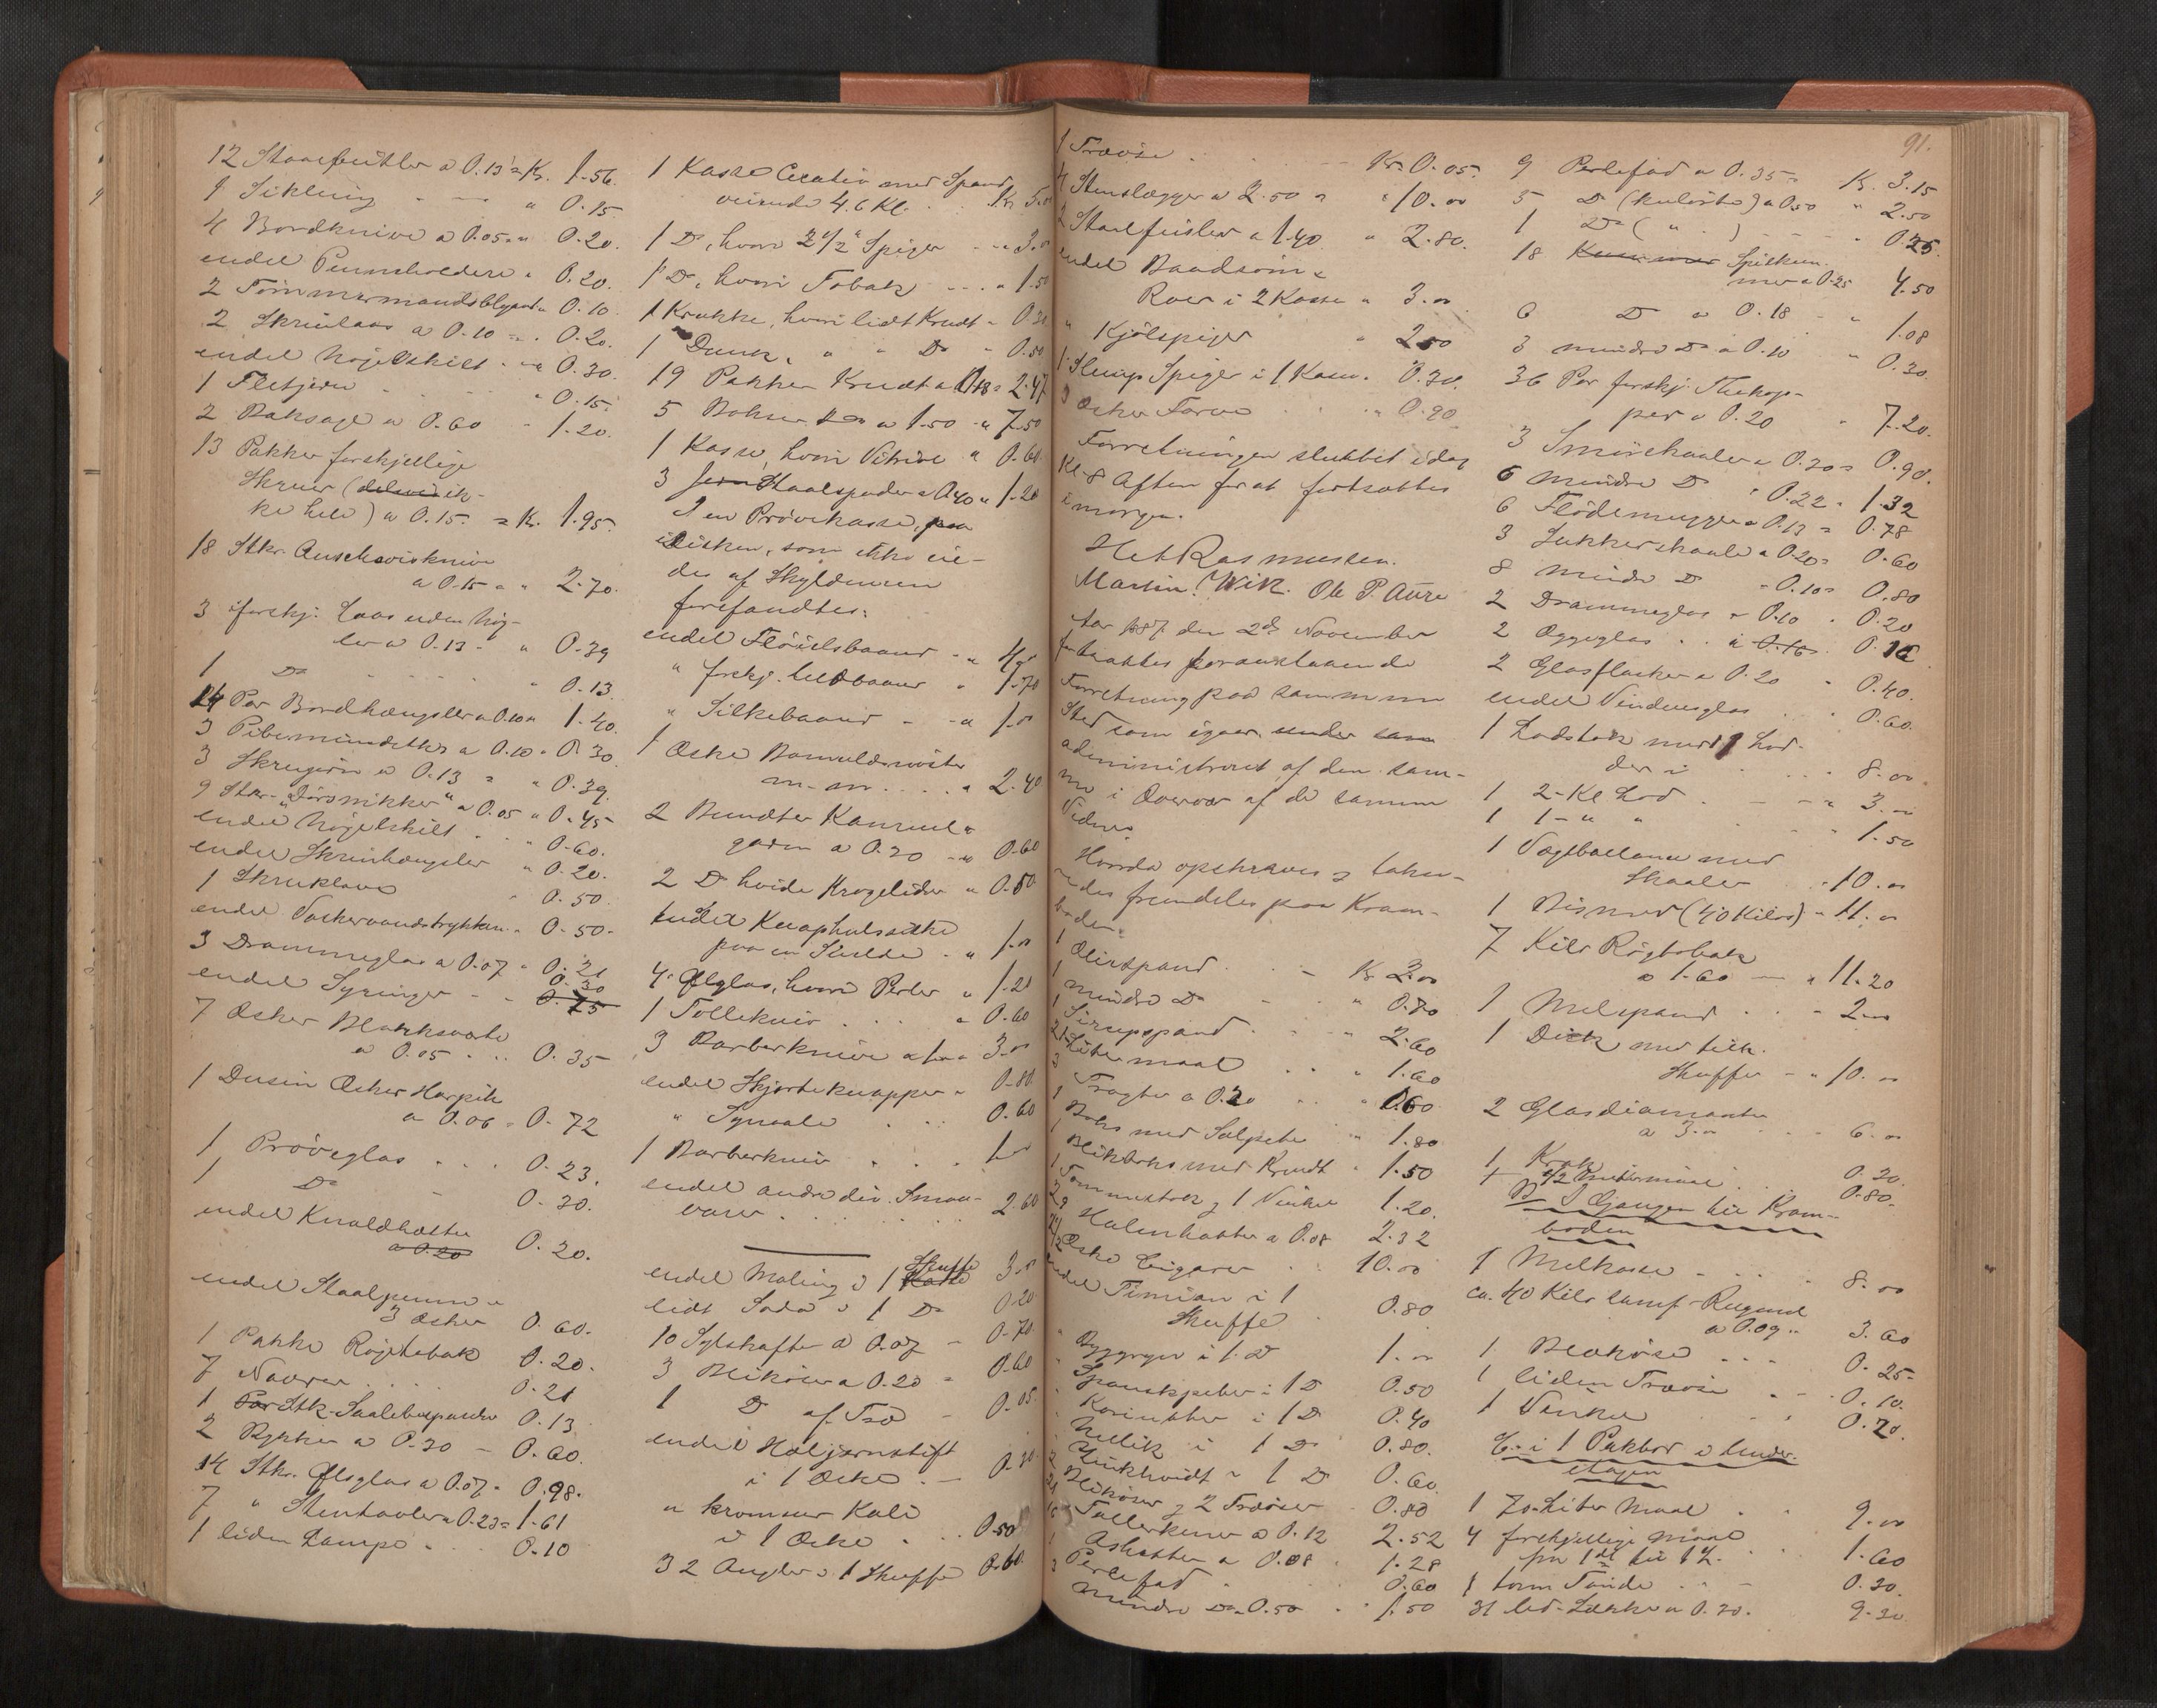 12 Staalfeiskler a 0.13 = Kr. 1.56.
1 Sikling " 0.15
4 Bordknive a 0.05 = " 0.20.
endel Penneholdere " 0.20.
2 Tømmermandsblyant " 0.10.
2 Skruelaas a 0.10 = 0.20.
endel Nøgelskilt - " 0.30.
1 Filejern " 0.15.
2 Baksage a 0.60 " 1.20.
13 Pakker forskjellige
Skruer (delvis ik-
ke hele) a 0.15. = Kr. 1.95.
18 Stkr.
a 0.15 = " 2.70.
3 forskj. Laas uden Nøg-
ler a 0.13 - " 0.39
1 Do " 0.13.
14 Par Bordhængsler a 0.10 = 1.40.
3 Pibemundstkr a 0.10 = 0.30
3 Skrujern a 0.13 = " 0.39.
9 Stkr. a 0.05 " 0.45
endel Nøgelskilt " 0.60.
endel Skrinhængsler " 0.20.
1 " 0.50.
endel " 0.50.
3 Drammeglas a 0.07 " 0.21
0.30
endel Syringer - - 0.75
7 Æsker Blanksværte
a 0.05 0.35
1 Dusin Æsker Harpik
a 0.06 = 0.72
1 Prøveglas . . . 0.23.
1 Do - 0.30.
endel Knaldhætter
a 0.20 0.20.
endel Staalpenne i
3 Æsker 0.60.
1 Pakke Røgtobak 0.20.
7 Navrer . . . . 0.21
1 Par Stk. 0.13
2 a 0.30 - 0.60.
14 Stk. Ølglas a 0.07 " 0.98.
7 " a 0.23 = 1.61
1 liden Lampe . . 0.10
1 Kasse med Spand
veiende 4.6 Kl. Kr 5.00
1 Do, hvori 2 1/2" Spiger - 3.00
1 Do, hvori Tobak - - " 1.50
1 Krukke, hvori lidt Krudt " 0.30
1 Dunk, " " Do " 0.50
19 Pakker Krudt a 0.13 = 2.47
5 Bokser Do a 1.50 " 7.50
1 Kasse, hvori Vitriol " 0.60
3 Jern Staalspader a 0.40 " 1.20
I en Prøvekasse, paa
Disken, som ikke eie-
des af Skyldneren
forefandtes:
endel Fløielsbaand - "
" forskj. Uldbaand " 1.70
" Silkebaand - - " 1.00
1 Æske
m. m. . . . . " 2.40
2 Bundter Kamuld-
garn a 0.30 - " 0.60
2 Do hvide " 0.50
endel Knaphulssilke
paa en Snelde . " 1.00
4 Ølglas, hvori Perler " 1.20
1 Tollekniv . . . " 0.60
3 Barberknive a 1.00 = 3.00
endel Skjorteknapper " 0.80
" Synaale . . . 0.60
1 Barberkniv . . . 1.00
endel andre div. Smaa-
varer . . . . . . . 2.60
Skuffe
endel Maling i 1 Kasse 3.00
lidt Soda i 1 Do 0.20
10 Sylskafter a 0.07 - 0.70
3 Blikøser a 0.20 = 0.60
1 Do af Træ - 0.05
endel
i 1 Æske . - 0.30
" kromsur Kali
i 1 Æske . . . 0.50
32 Angler i 1 Skuffe 0.60
91.
1 Træøse . . . - - Kr 0.05.
4 Stenslægger a 2.50 = " 10.00
2 Staalfeisler a 1.40 " 2.80.
endel Baadsøm &
Roer i 2 Kasser " 3.00
" Kjølspiger " 2.50
1 Slump Spiger i 1 Kasse " 0.30.
3 Æsker Farve . . . " 0.90
Forretningen sluttet idag
Kl. 8 Aften for at fortsættes
imorgen.
Rasmussen.
Martin Wik. Ole P. Aure
Aar 1887 den 2de November
fortsattes foranstaaende
Forretning paa samme
Sted som igaar under sam
administreret af den sam-
me i Overvær af de samme
Vidner.
Hvorda opskreves & takse-
redes fremdeles paa Kram-
boden:
1 Oliespand . . - Kr 3.00
1 mindre Do - " 0.70
1 Sirupspand . . . " 2.60
21 Litermaal . . " 1.60
3 Tragter a 0.20 . . " 0.60
1 Boks med Salpeter " 1.80
1 Blikboks med Krudt " 1.50
1 Tommestok & 1 Vinkel 1.20.
29 Halmhatter a 0.08 2.32
2 1/2 Æske Cigarer . . 10.00
endel Timian i 1
Skuffe . 0.80
" Byggryn i 1 Do 1.00
" Spanskpeber i 1 Do 0.50
" Korinther i 1 Do 0.40
" Nellik i 1 Do 0.80.
" Zinkhvidt i 1 Do 0.60.
2 Blikøser & 2 Træøser 0.80
21 Tallerkener a 0.12 2.52
16 Askatter a 0.08 1.28
1 Perlefad . 0.60
3 mindre Do a 0.50 . 1.50
9 Perlefad a 0.35 = Kr. 3.15
5 Do (kulørte) a 0.50 " 2.50
1 Do ( " ) - - " 0.25
18 Kummer Spilkum-
mer a 0.25 4.50
6 Do a 0.18 - " 1.08
3 mindre Do a 0.10 " 0.30
36 Par forskj. Thekop-
per a 0.20 " 7.20.
3 Smørskaaler a 0.30 = 0.90.
6 mindre Do " 0.22 = 1.32
6 Flødemugger a 0.13 = 0.78
3 Sukkerskaale a 0.20 = 0.60
8 mindre Do " 0.10 = 0.80
2 Drammeglas a 0.10 . 0.20
2 Æggeglas . . a 0.16 0.16
2 Glasflasker a 0.20 " 0.40.
endel Vinduesglas . . " 0.60.
1 Lodstok med 7 Lod-
der i . . . . 8.00
1 2-Kl Lod . - - " 3.00
1 1- " " " 1.50
1 Vægtballance med
Skaaler " 10.00
1 Bismer (40 Kilos) - 11.00
7 Kilo Røgtobak
a 1.60 - " 11.20
1 Melspand . . . - 2.00
1 Disk med tilh.
Skuffer - " 10.00
2 Glasdiamanter
a 3.00 . . . 6.00
1 Krok . . . 0.20.
1 1/2 Metermaal . . 0.80.
B. I Gangen til Kram-
boden
1 Melkasse - . . . 8.00
ca. 40 Kilo Rugmel
a 0.09 " 3.60
1 Blikøse . . . 0.25
1 liden Træøse . . 0.10.
1 Vinkel . . 0.20.
C. i 1 Pakbod i Under-
etagen
1 70-Liter Maal . 9.00
4 forskjellige Maal
fra 1 dl til 1 L. . 1.60
1 tom Tønde . . - 0.30.
31 a 0.30. 9.30